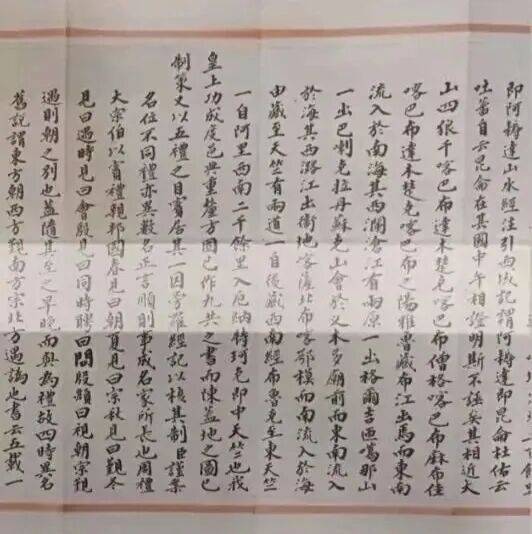 即阿耨達山水經注引西域記謂阿耨達即昆侖杜佑云
吐蕃自云昆侖在其國中互相證明斯不誣矣其相近大
山四狼千喀巴布達木楚克喀巴布僧格喀巴布麻布佳
喀巴布達木楚克喀巴布之陽雅魯藏布江出焉而東南
流入於南海其西瀾滄江有兩原一出格爾吉匝噶那山
一出巴喇克拉丹蘇克山會於乂木多廟前而東南流入
於海其西潞江出衛地喀薩北布喀鄂模而南流入於海
由藏至天竺有兩道一自後藏西南經布魯克至東天竺
一自阿里西南二千餘里入厄納特珂克即中天竺也我
皇上功成度邑典重釐方固已作九共之書而陳蓋地之圖已
制策又以五禮之目賓居其一因旁羅經記以核其制臣謹案
名位不同禮亦異數名正言順則事成名家所長也周禮
大宗伯以賓禮親邦國春見曰朝夏見曰宗秋見曰覲冬
見曰遇時見曰會殷見曰同時聘曰問殷頫曰視朝宗覲
遇則朝之別也蓋隨其至之早晚而異為禮故四時異名
舊說謂東方朝西方覲南方宗北方遇譌也書云五載一